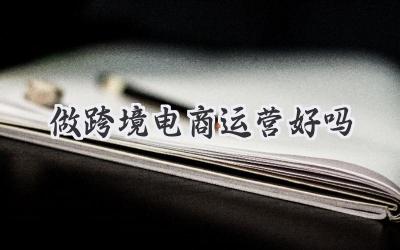 做跨境电商运营好吗